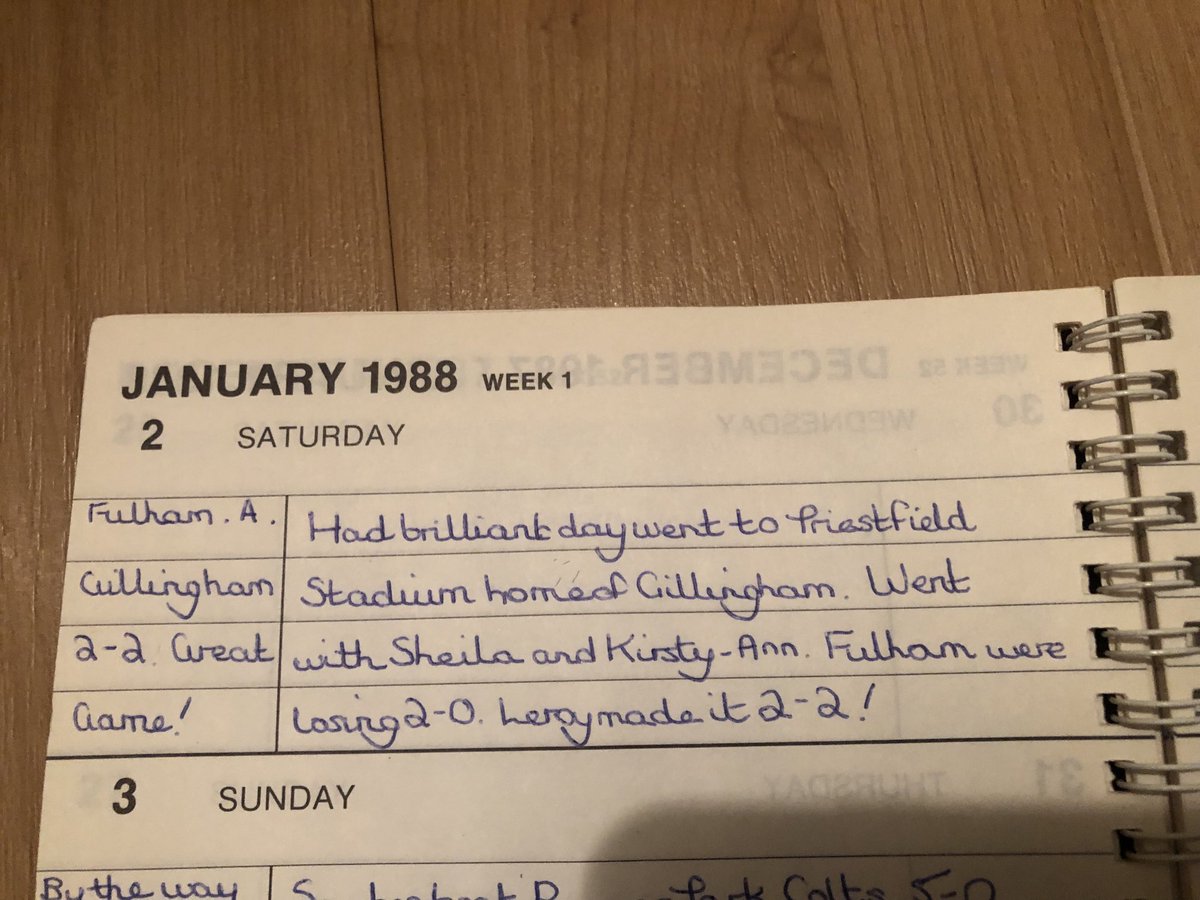 JANUARY 1988 WEEK 1
2 SATURDAY
Fulham. A.
Gillingham
2-2. Great
Game!
Had brilliant day went to Priestfield
Stadium home of Gillingham. Went
with Sheila and Kirsty-Ann. Fulham were
losing 2-0. Leroy made it 2-2!
3 SUNDAY
By the way
Park Colts 5-0
WEEK 52 DECEMBER 1987
30 WEDNESDAY
31 THURSDAY